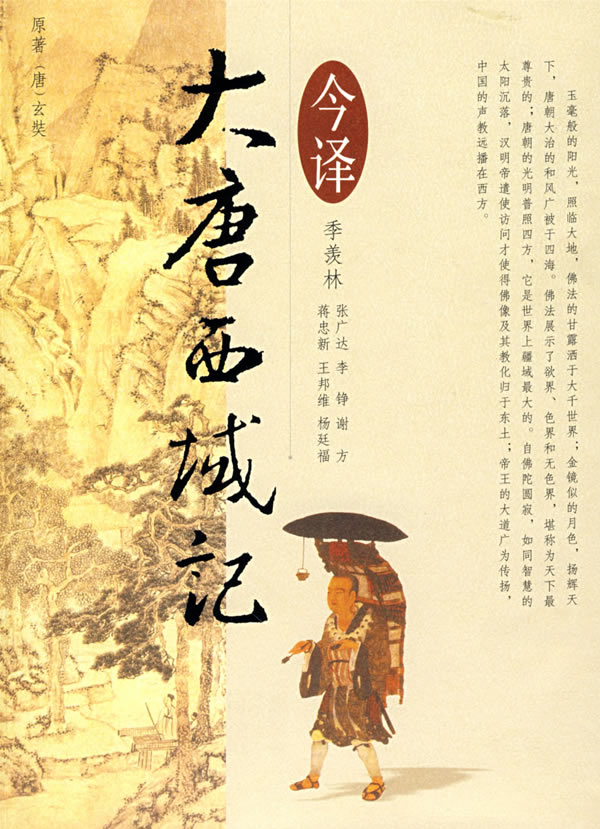 原著（唐）玄奘
大唐西域記
今译
季羡林
张广达 李 铮 谢 方
蒋忠新 王邦维 杨廷福
玉毫般的阳光，照临大地，佛法的甘露洒于大千世界；金镜似的月色，扬辉天
下，唐朝大治的和风广被于四海。佛法展示了欲界、色界和无色界，堪称为天下最
尊贵的；唐朝的光明普照四方，它是世界上疆域最大的。自佛陀圆寂，如同智慧的
太阳沉落，汉明帝遣使访问才使得佛像及其教化归于东土；帝王的大道广为传扬，
中国的声教远播在西方。